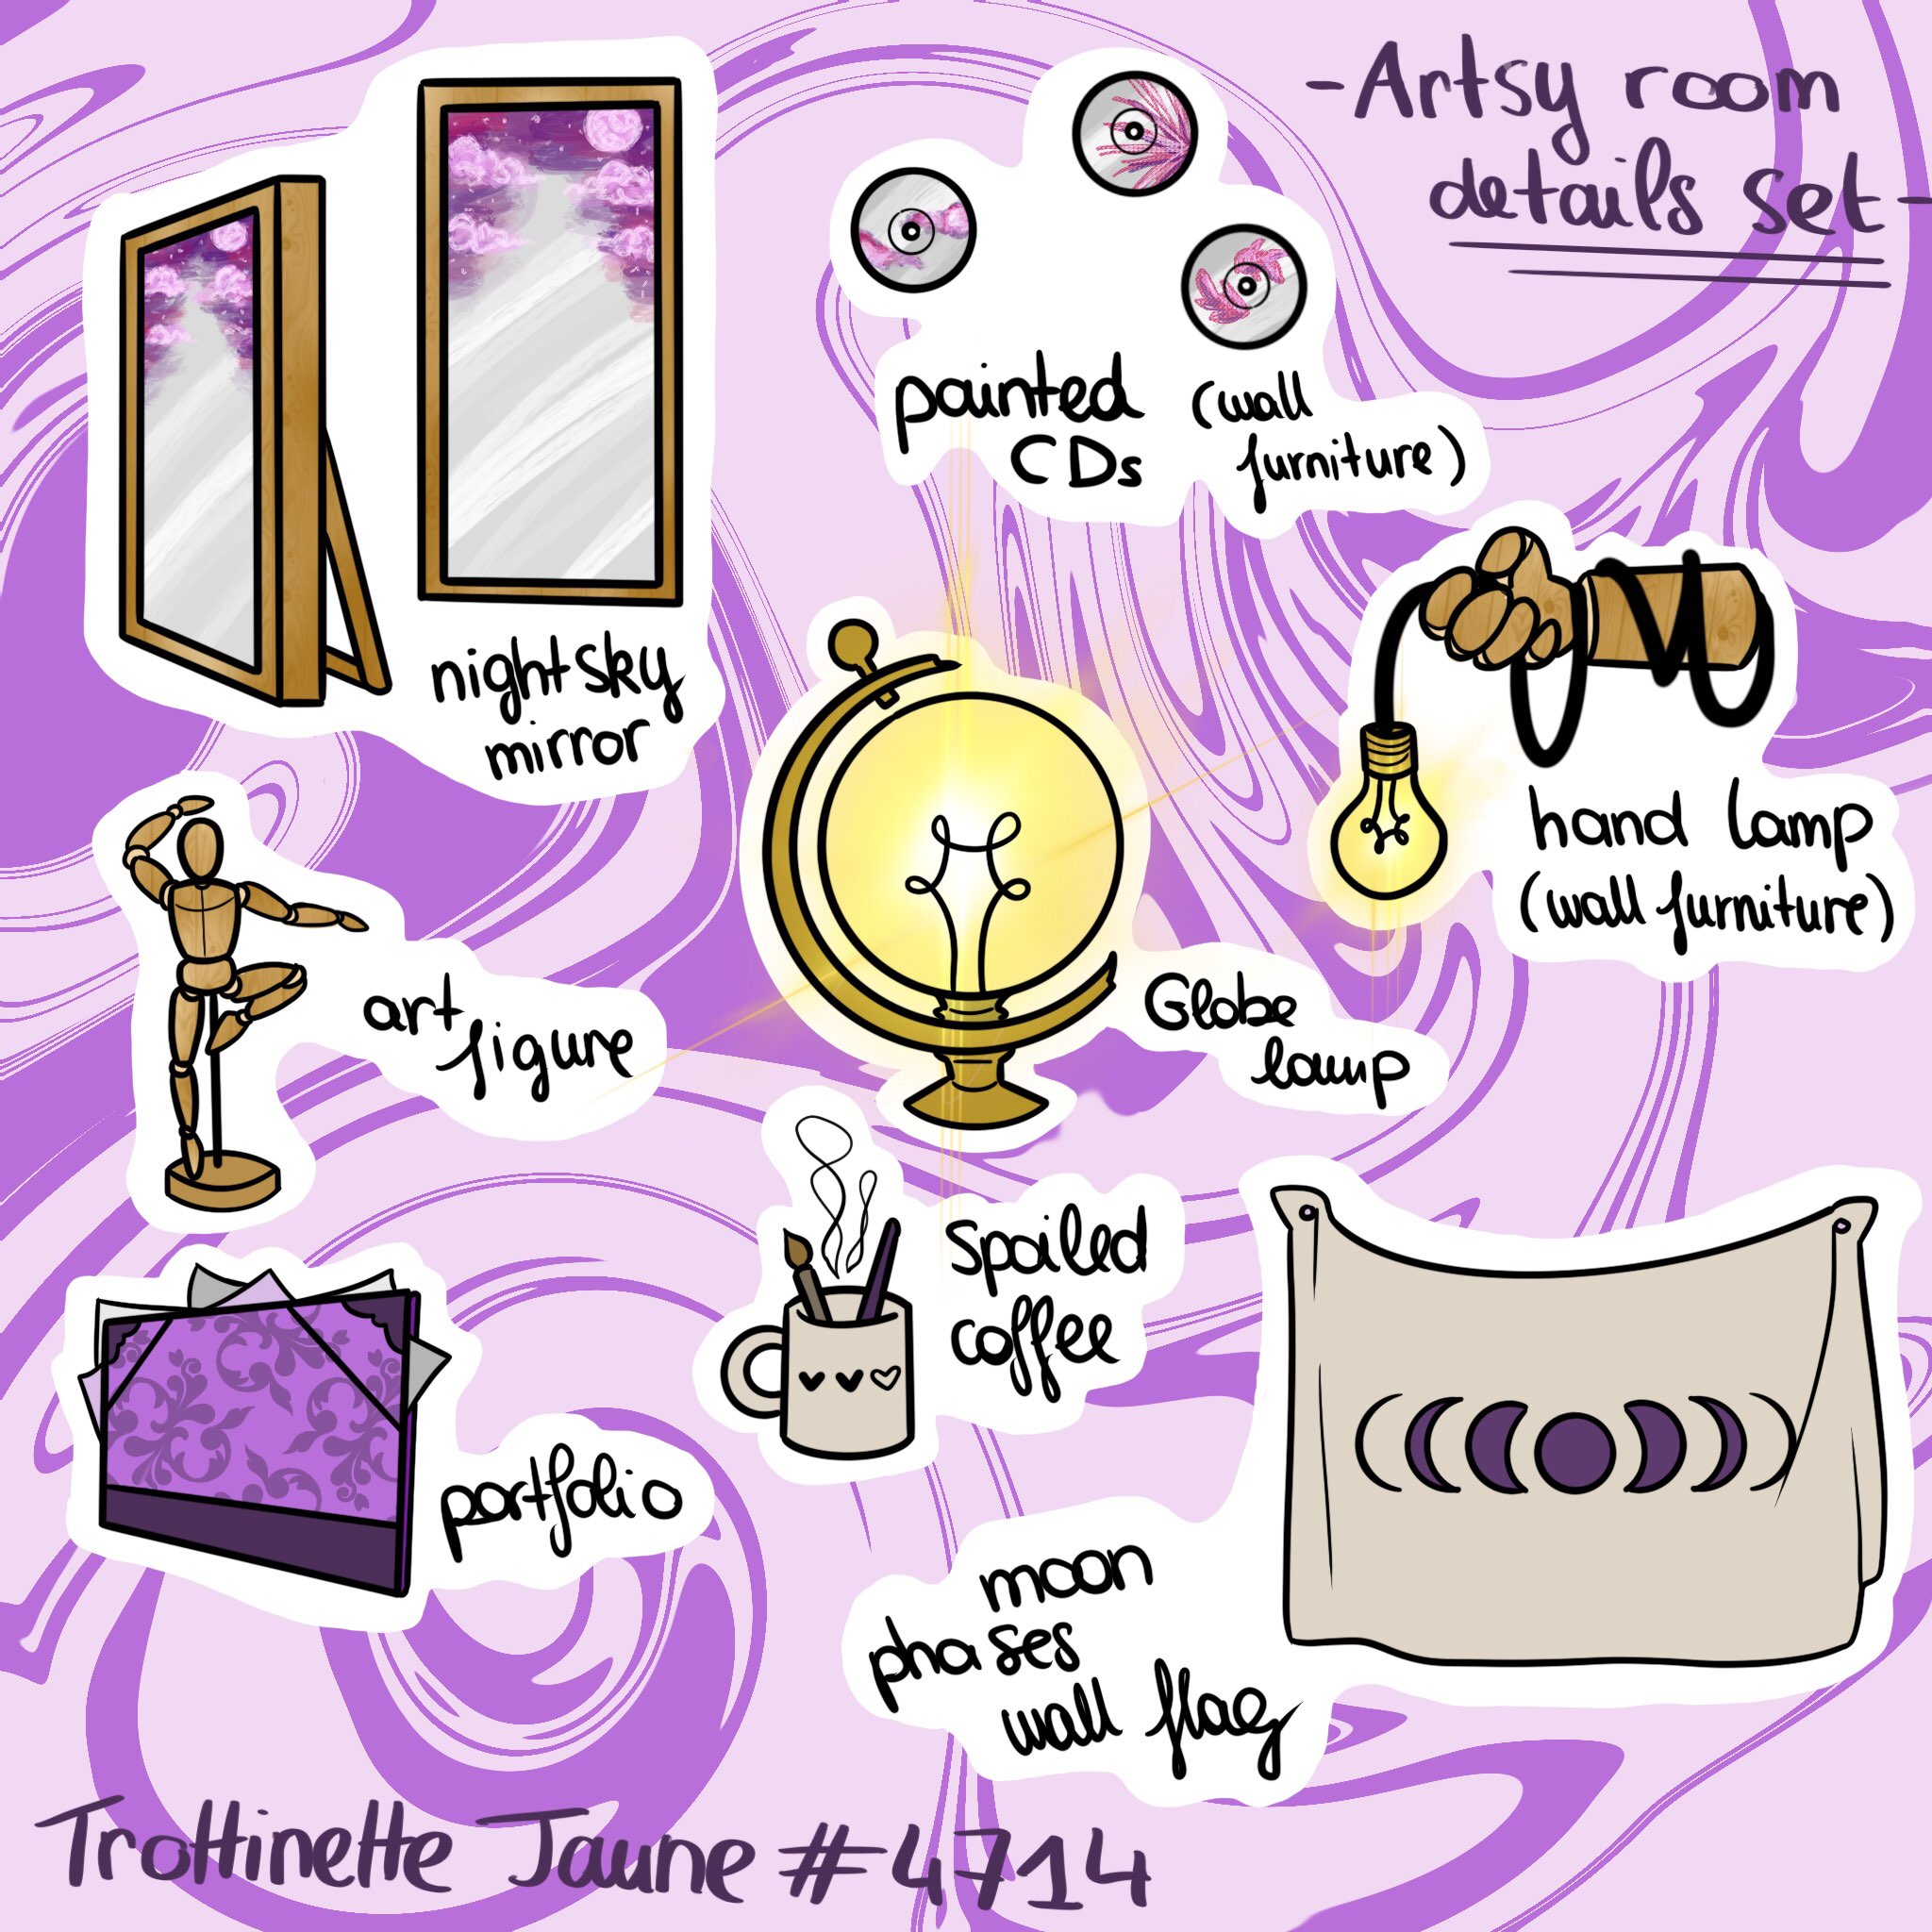 -Artsy room
details set-
painted
CDs
(wall
furniture)
night sky
mirror
hand lamp
(wall furniture)
art
figure
Globe
lamp
Spoiled
coffee
portfolio
moon
phases
wall flag
Trottinette Jaune #4714